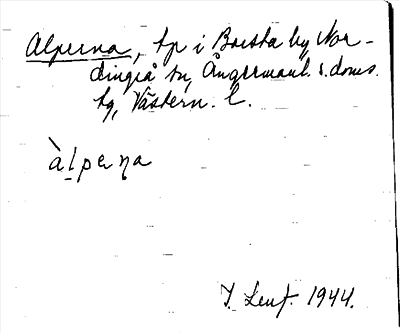 Alperna, tp i Barsta by Nor-
dingrå sn, Ångermanl. s. doms.
tg, Västern. l.
àlpeṇa
1944.